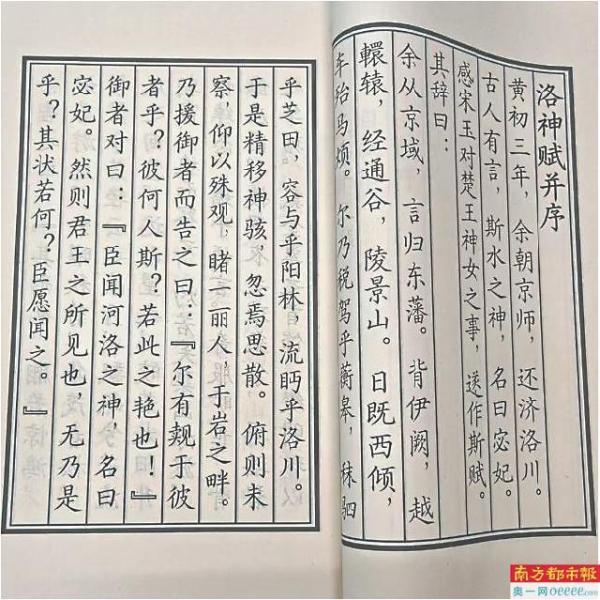 洛神赋并序
黄初三年，余朝京师，还济洛川。
古人有言，斯水之神，名曰宓妃。
感宋玉对楚王神女之事，遂作斯赋。
其辞曰：
余从京域，言归东藩。背伊阙，越
轘辕，经通谷，陵景山。日既西倾，
车殆马烦。尔乃税驾乎蘅皋，秣驷
乎芝田，容与乎阳林，流眄乎洛川。
于是精移神骇，忽焉思散。俯则未
察，仰以殊观，睹一丽人，于岩之畔。
乃援御者而告之曰：『尔有觌于彼
者乎？彼何人斯？若此之艳也！』
御者对曰：『臣闻河洛之神，名曰
宓妃。然则君王之所见也，无乃是
乎？其状若何？臣愿闻之。』
南方都市報
奥一网oeeee.com